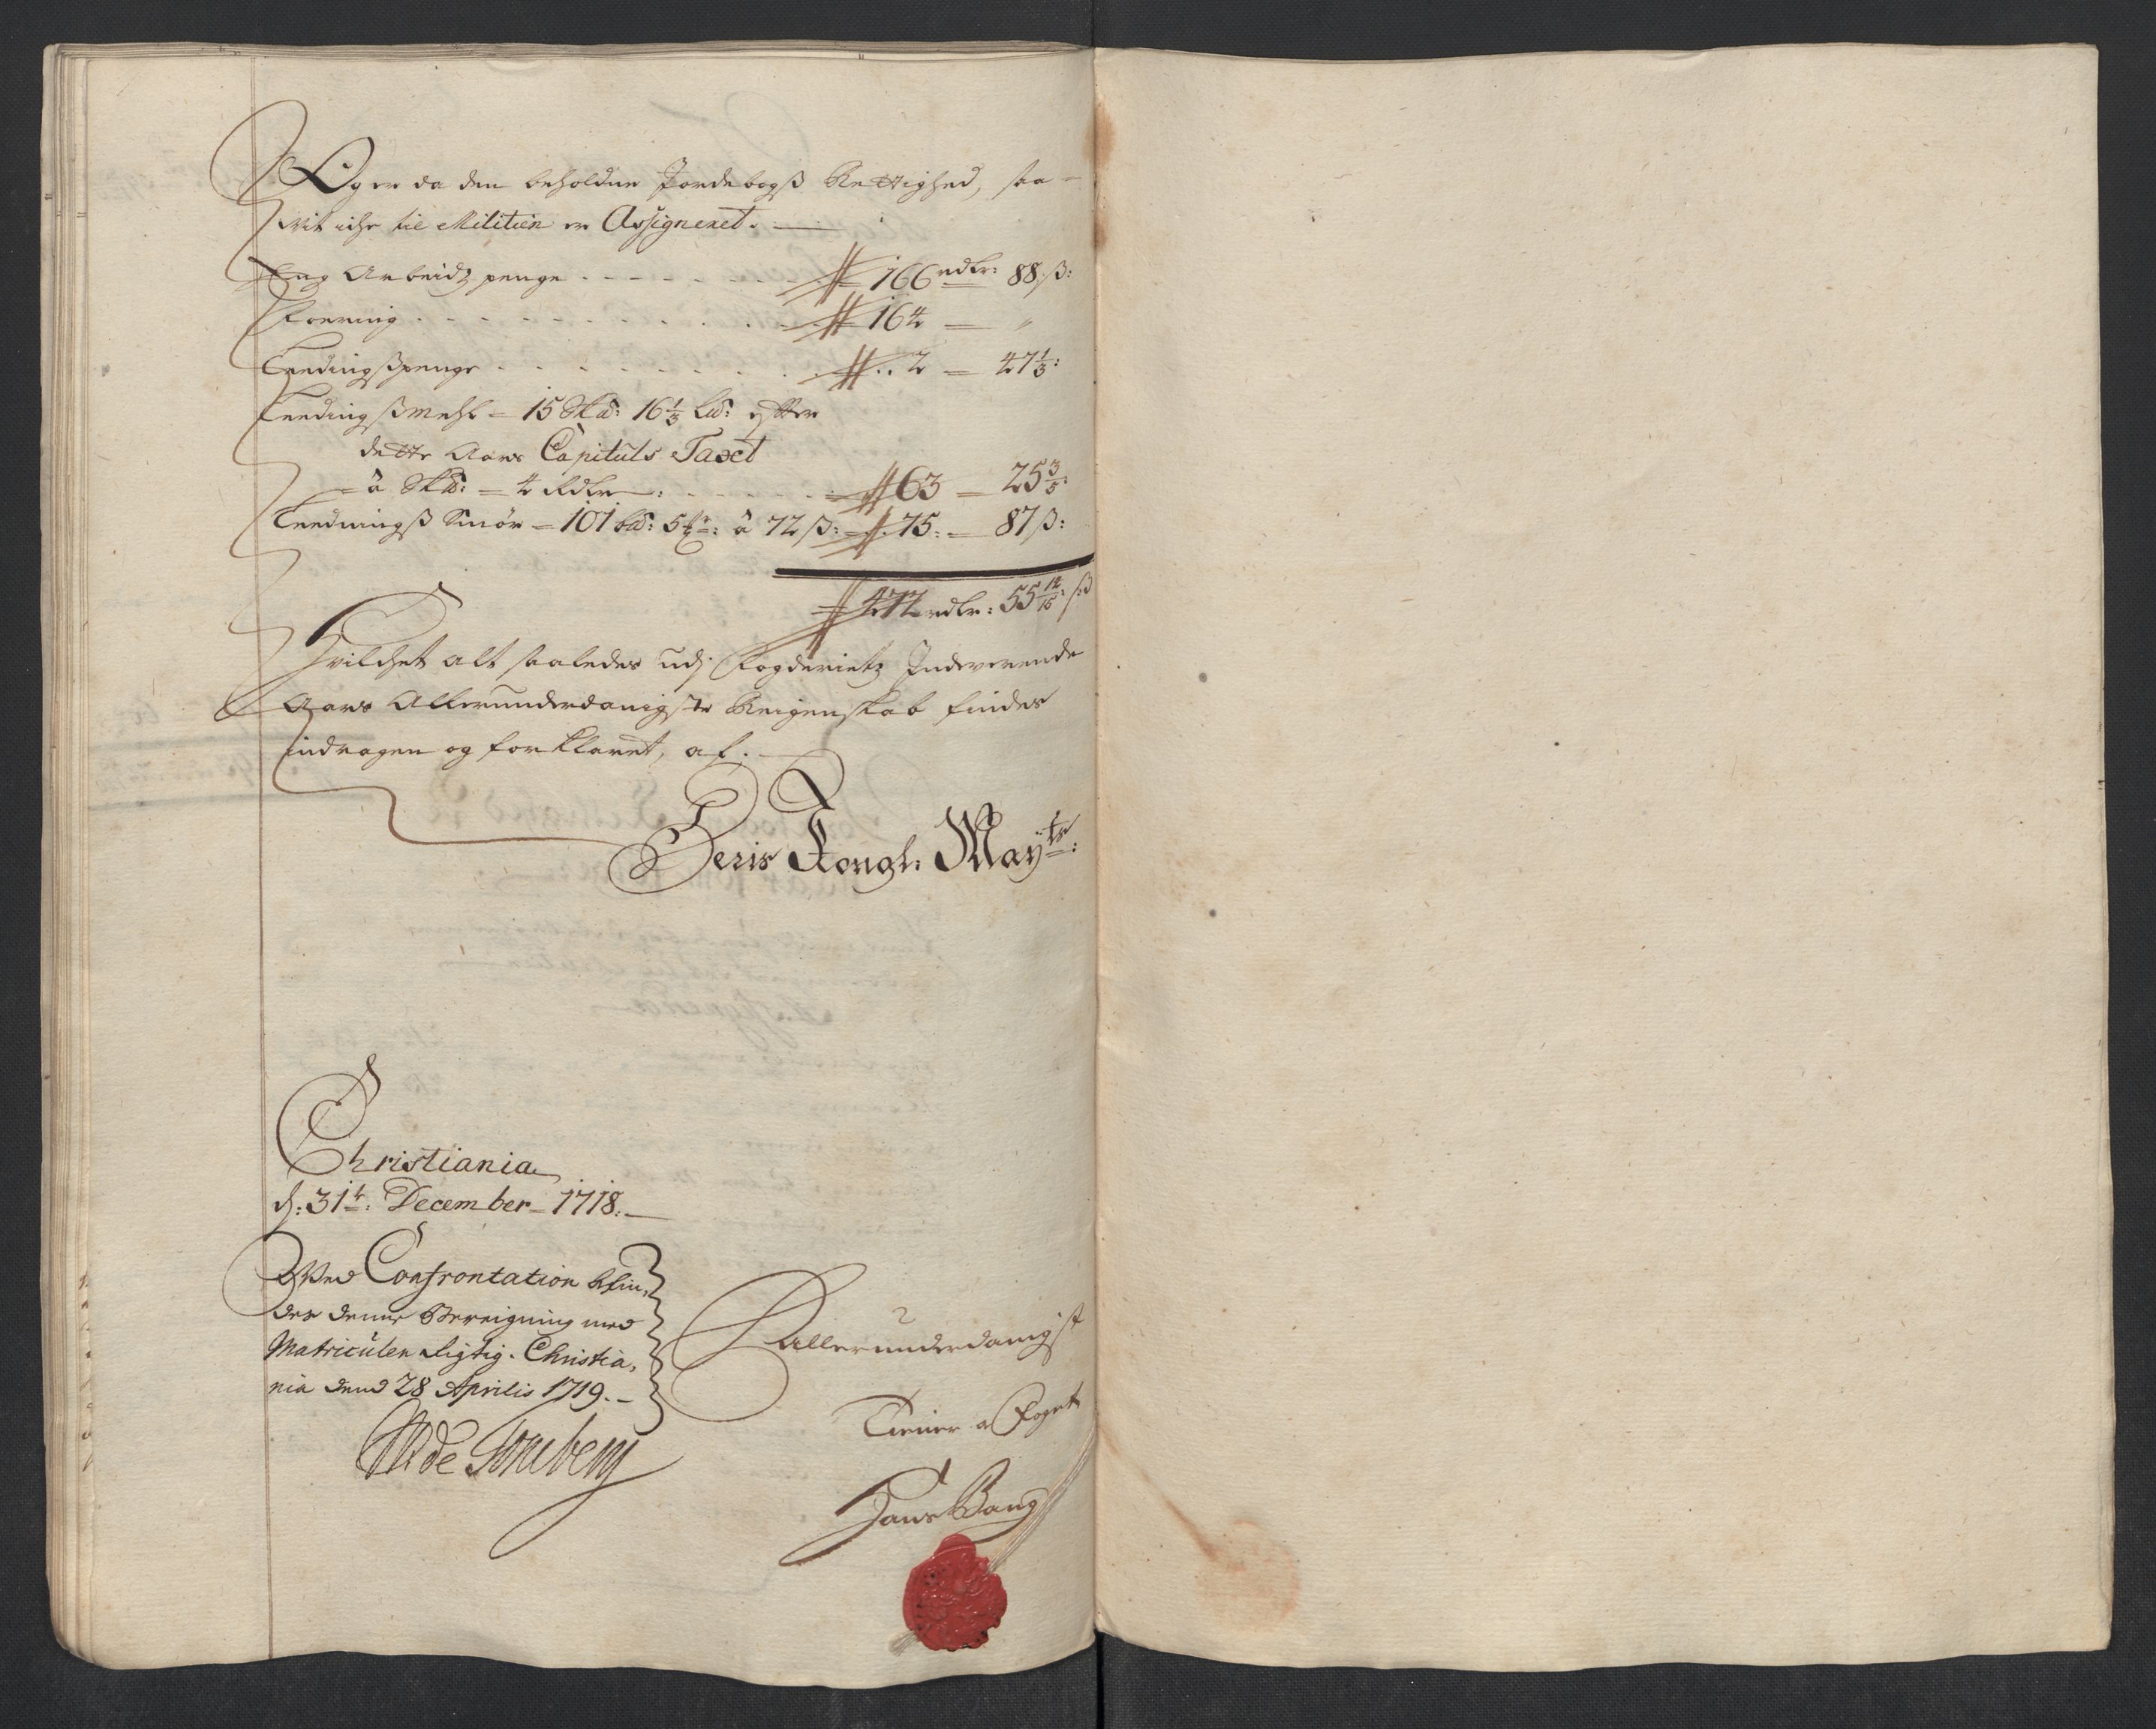 Og er da den beholdne Jordebogß Rettighed, saa-
vit iche til Militien er Assigneret.
Eng Arbeidz penge - - - - - - 166 rdlr: 88 ß:
Foering - - - - - - - - - 164 — "
Leedingßpenge - - - - - - - 2 — 47 1/3:
Leedingßmehl - 15 Skd: 16 1/3 Ld: efter
dette Aars Capituls Taxt
- â Skd: - 4 Rdlr: - - - - 63 — 25 3/5:
Leedningß Smør - 101 bd: 5 â 72 ß: - 75: — 87 ß:
472 rdlr: 55 14/15: ß
Hvilchet alt saaledes udj Fogderietz Indeverende
Aars Allerunderdanigste Reigenskab findes
indragen og forklaret, af.
Deris Kongl: Mayts:
Christiania
d: 31t: December - 1718.
Wed Confrontation befin,
des denne Bereigning med
Matriculen Rigtig. Christia,
nia dend 28 Aprilis 1719.-
allerunderdanigst
Tiener a Foget
Hans Bang